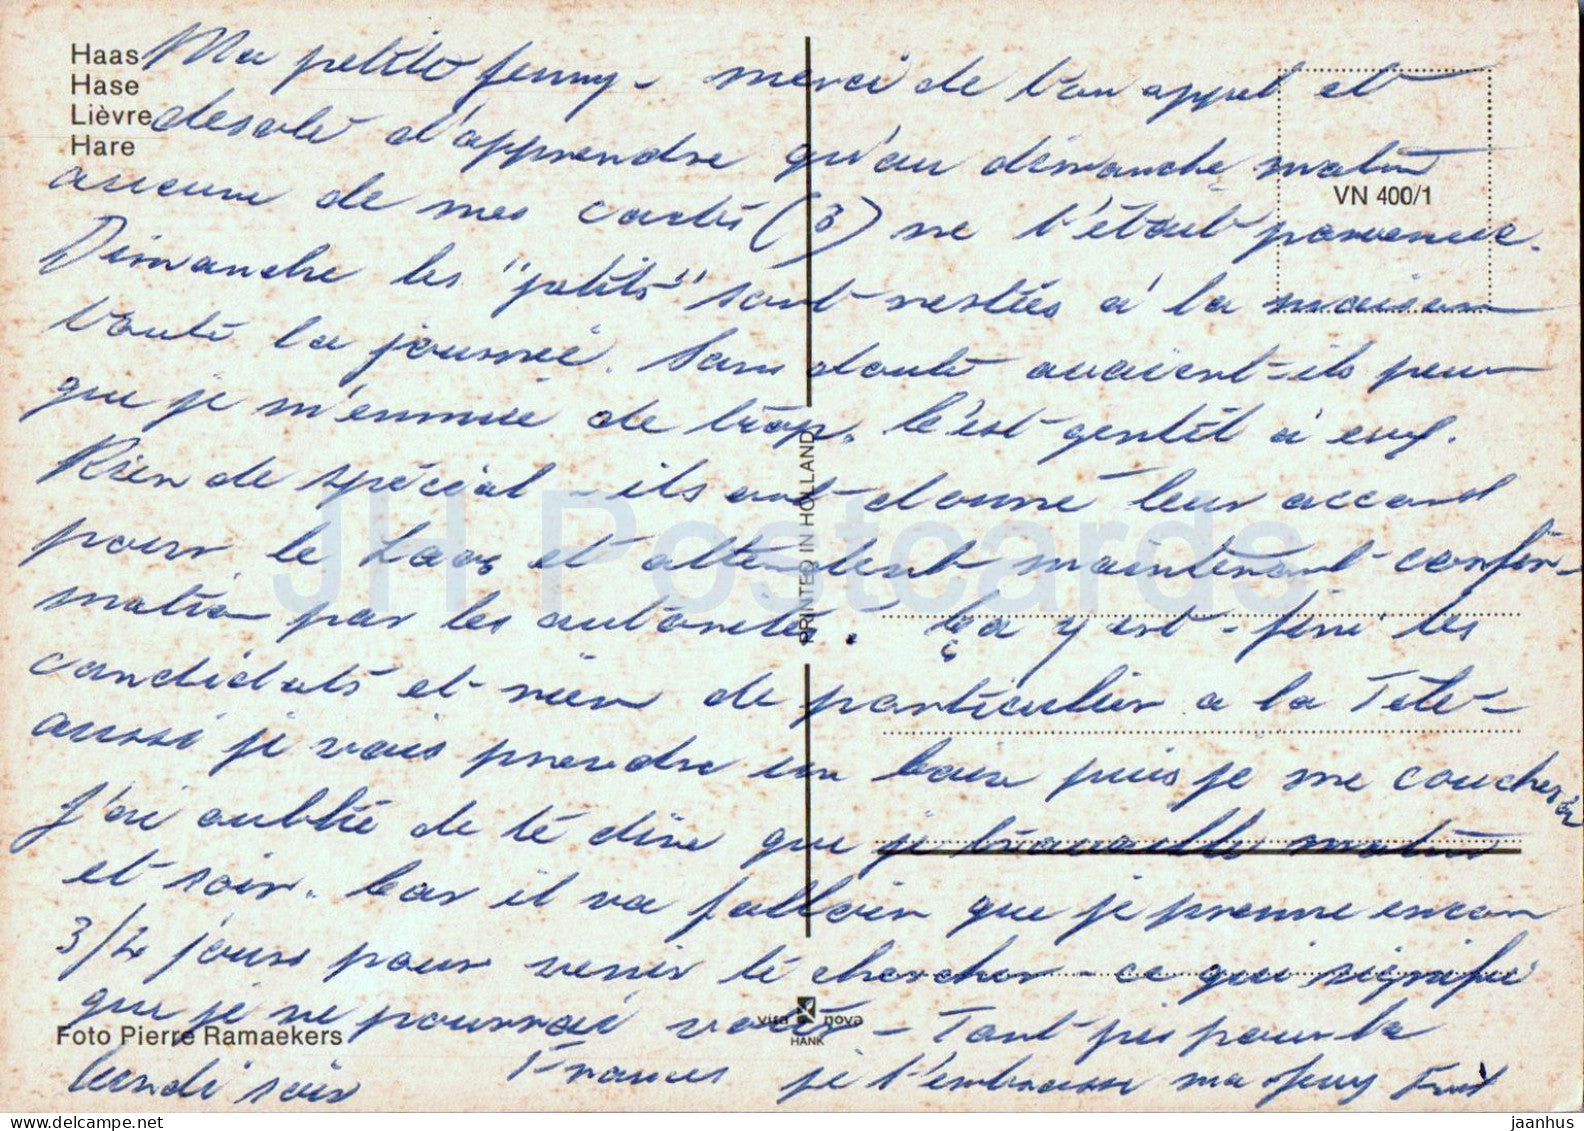 Haas
Hase
Lièvre
Hare
VN 400/1
Ma petite Jenny - merci de ton appel et
desolé d'apprendre qu'au dimanche matin
aucune de mes cartes (3) ne t'était parvenue.
Dimanche les "petits" sont restées à la maison
toute la journée. Sans doute avaient-ils peur
que je m'ennuie de trop. C'est gentil à eux.
Rien de spécial - ils ont donné leur accord
pour le Laos et attendent maintenant confir-
mation par les autorités. Ça y est - fini les
candidats et rien de particulier a la Tele -
aussi je vais prendre un bain puis je me coucherai
J'ai oublié de te dire que je travaille matin
et soir. Car il va falloir que je prenne encore
3/4 jours pour venir te chercher - ce qui signifie
que je ne pourrai voter - Tant pis pour la
France je t'embrasse ma Jenny
lundi soir
PRINTED IN HOLLAND
Foto Pierre Ramaekers
vita nova
HANK
JH Postcards
www.delcampe.net
jaanhus